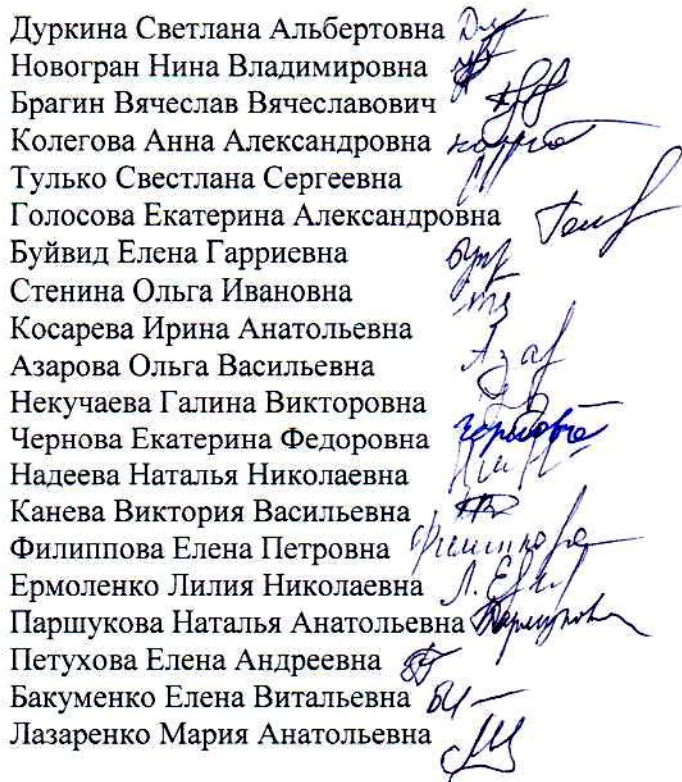 Дуркина Светлана Альбертовна
Новогран Нина Владимировна
Брагин Вячеслав Вячеславович
Колегова Анна Александровна
Тулько Свестлана Сергеевна
Голосова Екатерина Александровна
Буйвид Елена Гарриевна
Стенина Ольга Ивановна
Косарева Ирина Анатольевна
Азарова Ольга Васильевна
Некучаева Галина Викторовна
Чернова Екатерина Федоровна
Надеева Наталья Николаевна
Канева Виктория Васильевна
Филиппова Елена Петровна
Ермоленко Лилия Николаевна
Паршукова Наталья Анатольевна
Петухова Елена Андреевна
Бакуменко Елена Витальевна
Лазаренко Мария Анатольевна